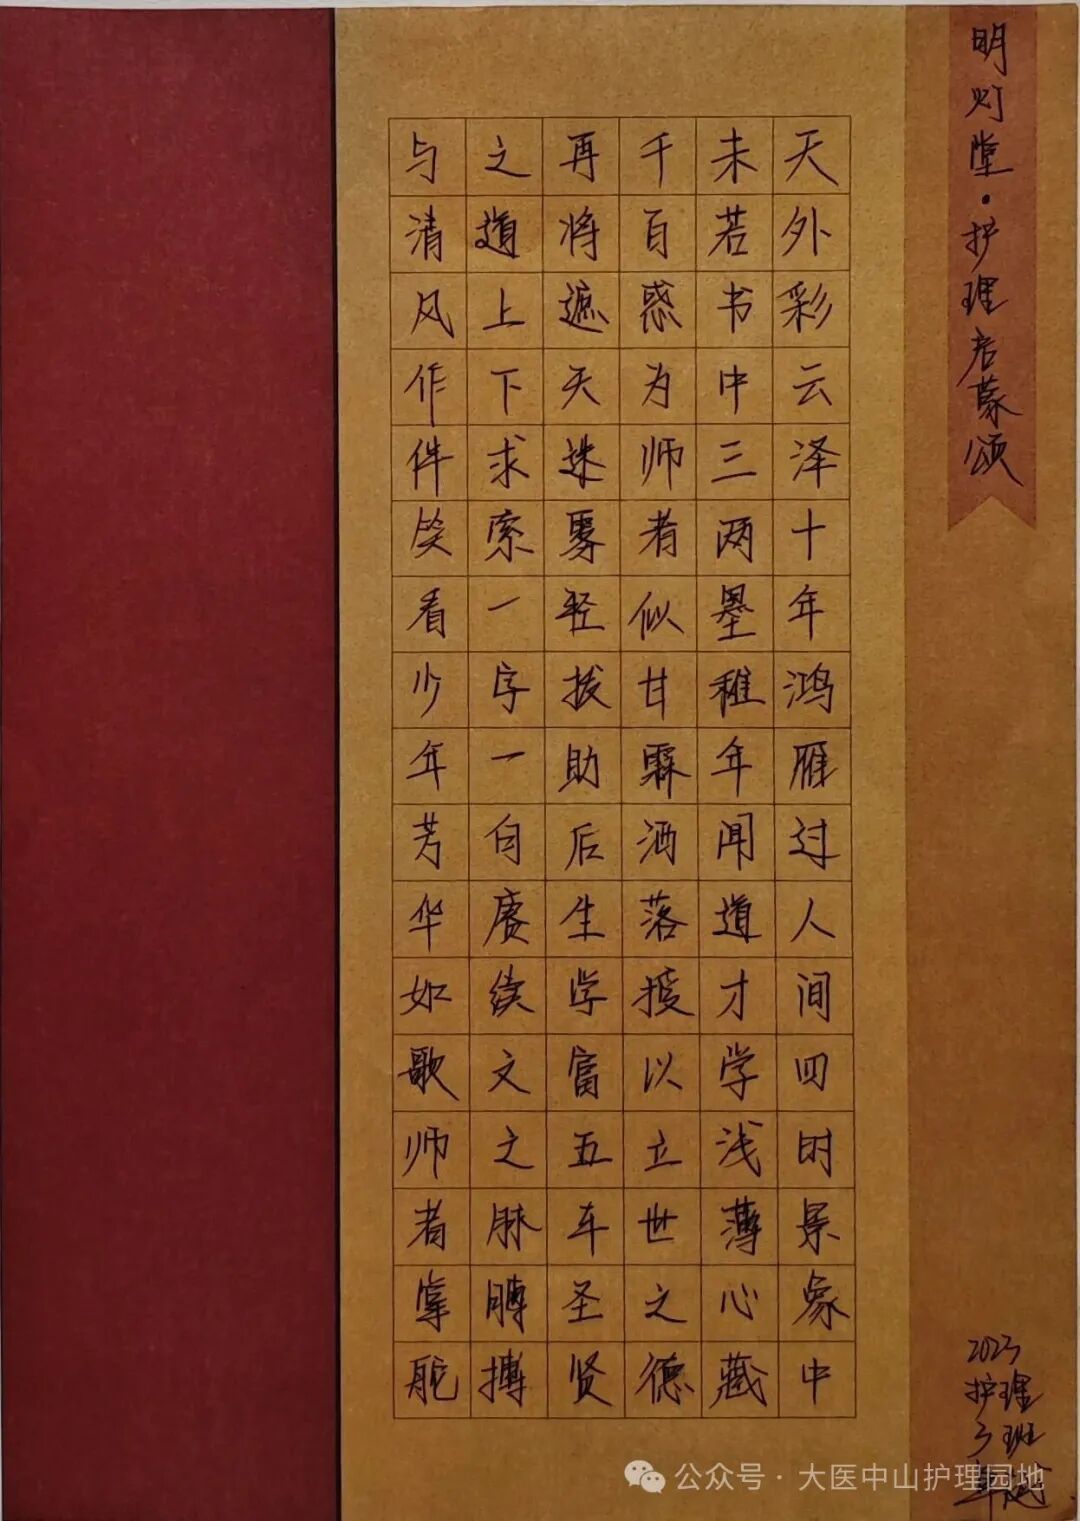 明灯堂·护理启蒙颂
天外彩云泽十年鸿雁过人间四时景象中
未若书中三两墨稚年闻道才学浅薄心藏
千百惑为师者似甘霖洒落授以立世之德
再将遮天迷雾轻拨助后生学富五车圣贤
之道上下求索一字一句赓续文之脉膊搏
与清风作伴笑看少年芳华如歌师者掌舵
2023
护理
3班
公众号·大医中山护理园地